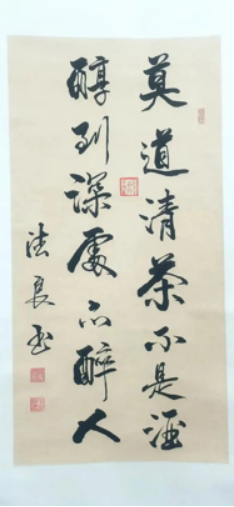 莫道清茶不是酒
醇到深處亦醉人
法良書